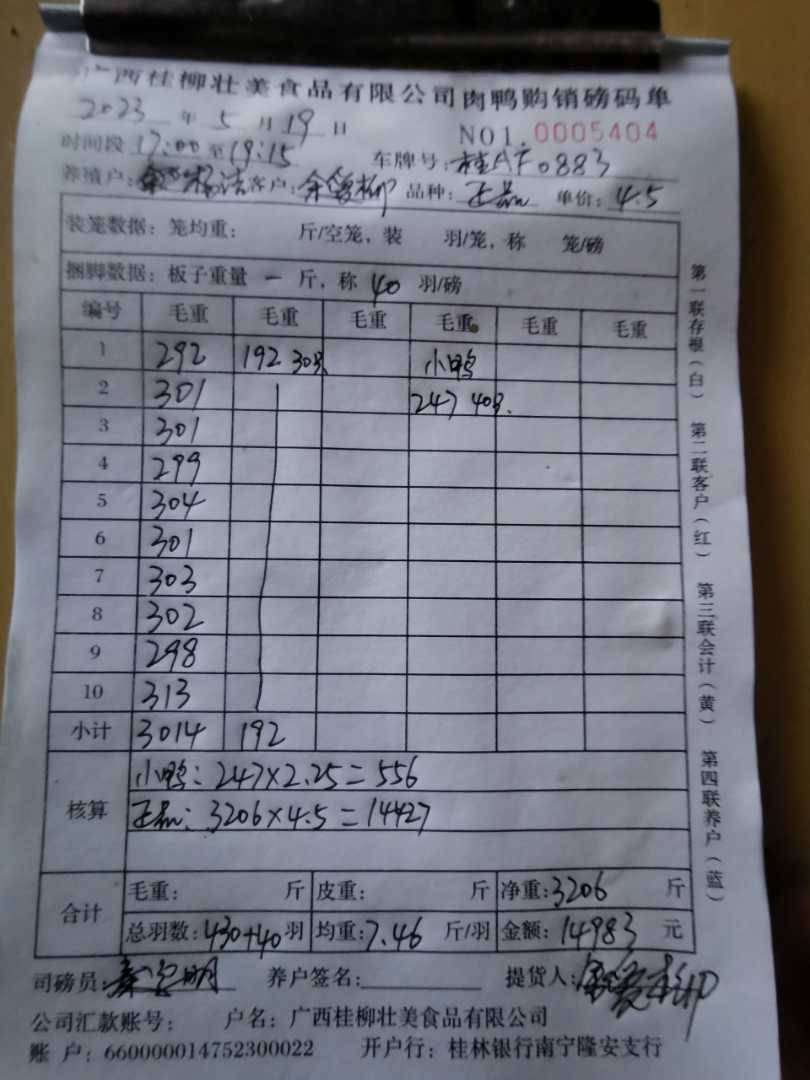 广西桂柳壮美食品有限公司肉鸭购销磅码单
2023 年 5 月 19 日 NO1. 0005404
时间段 17:00 至 19:15 车牌号: 桂AF0883
养殖户: 客户: 余爱柳 品种: 正品 单价: 4.5
装笼数据: 笼均重: 斤/空笼, 装 羽/笼, 称 笼/磅
捆脚数据: 板子重量 一 斤, 称 40 羽/磅
编号 毛重 毛重 毛重 毛重 毛重 毛重
1 292 192 30羽 小鸭
2 301 247 40羽.
3 301
4 299
5 304
6 301
7 303
8 302
9 298
10 313
小计 3014 192
核算
小鸭: 247×2.25=556
正品: 3206×4.5=14427
合计
毛重: 斤 皮重: 斤 净重: 3206 斤
总羽数: 430+40 羽 均重: 7.46 斤/羽 金额: 14983 元
司磅员: 养户签名: 提货人: 余爱柳
公司汇款账号: 户名: 广西桂柳壮美食品有限公司
账 户: 660000014752300022 开户行: 桂林银行南宁隆安支行
第一联存根(白) 第二联客户(红) 第三联会计(黄) 第四联养户(蓝)